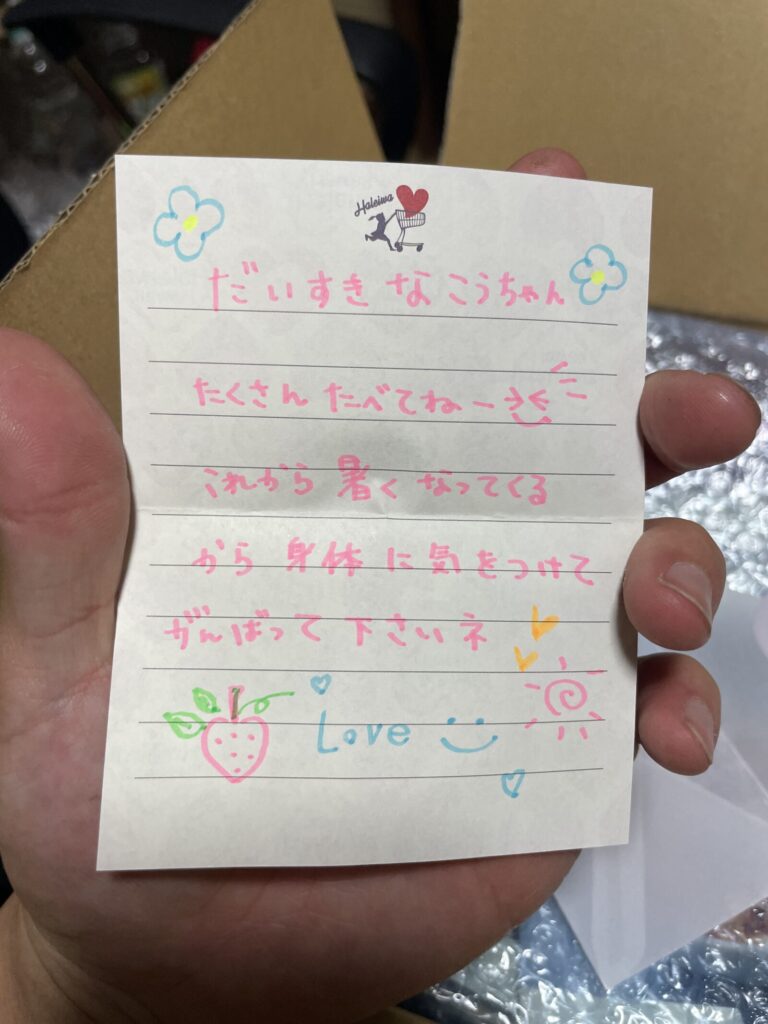 Haleiwa
だいすきなこうちゃん
たくさんたべてねー
これから暑くなってくる
から身体に気をつけて
がんばって下さいネ
Love